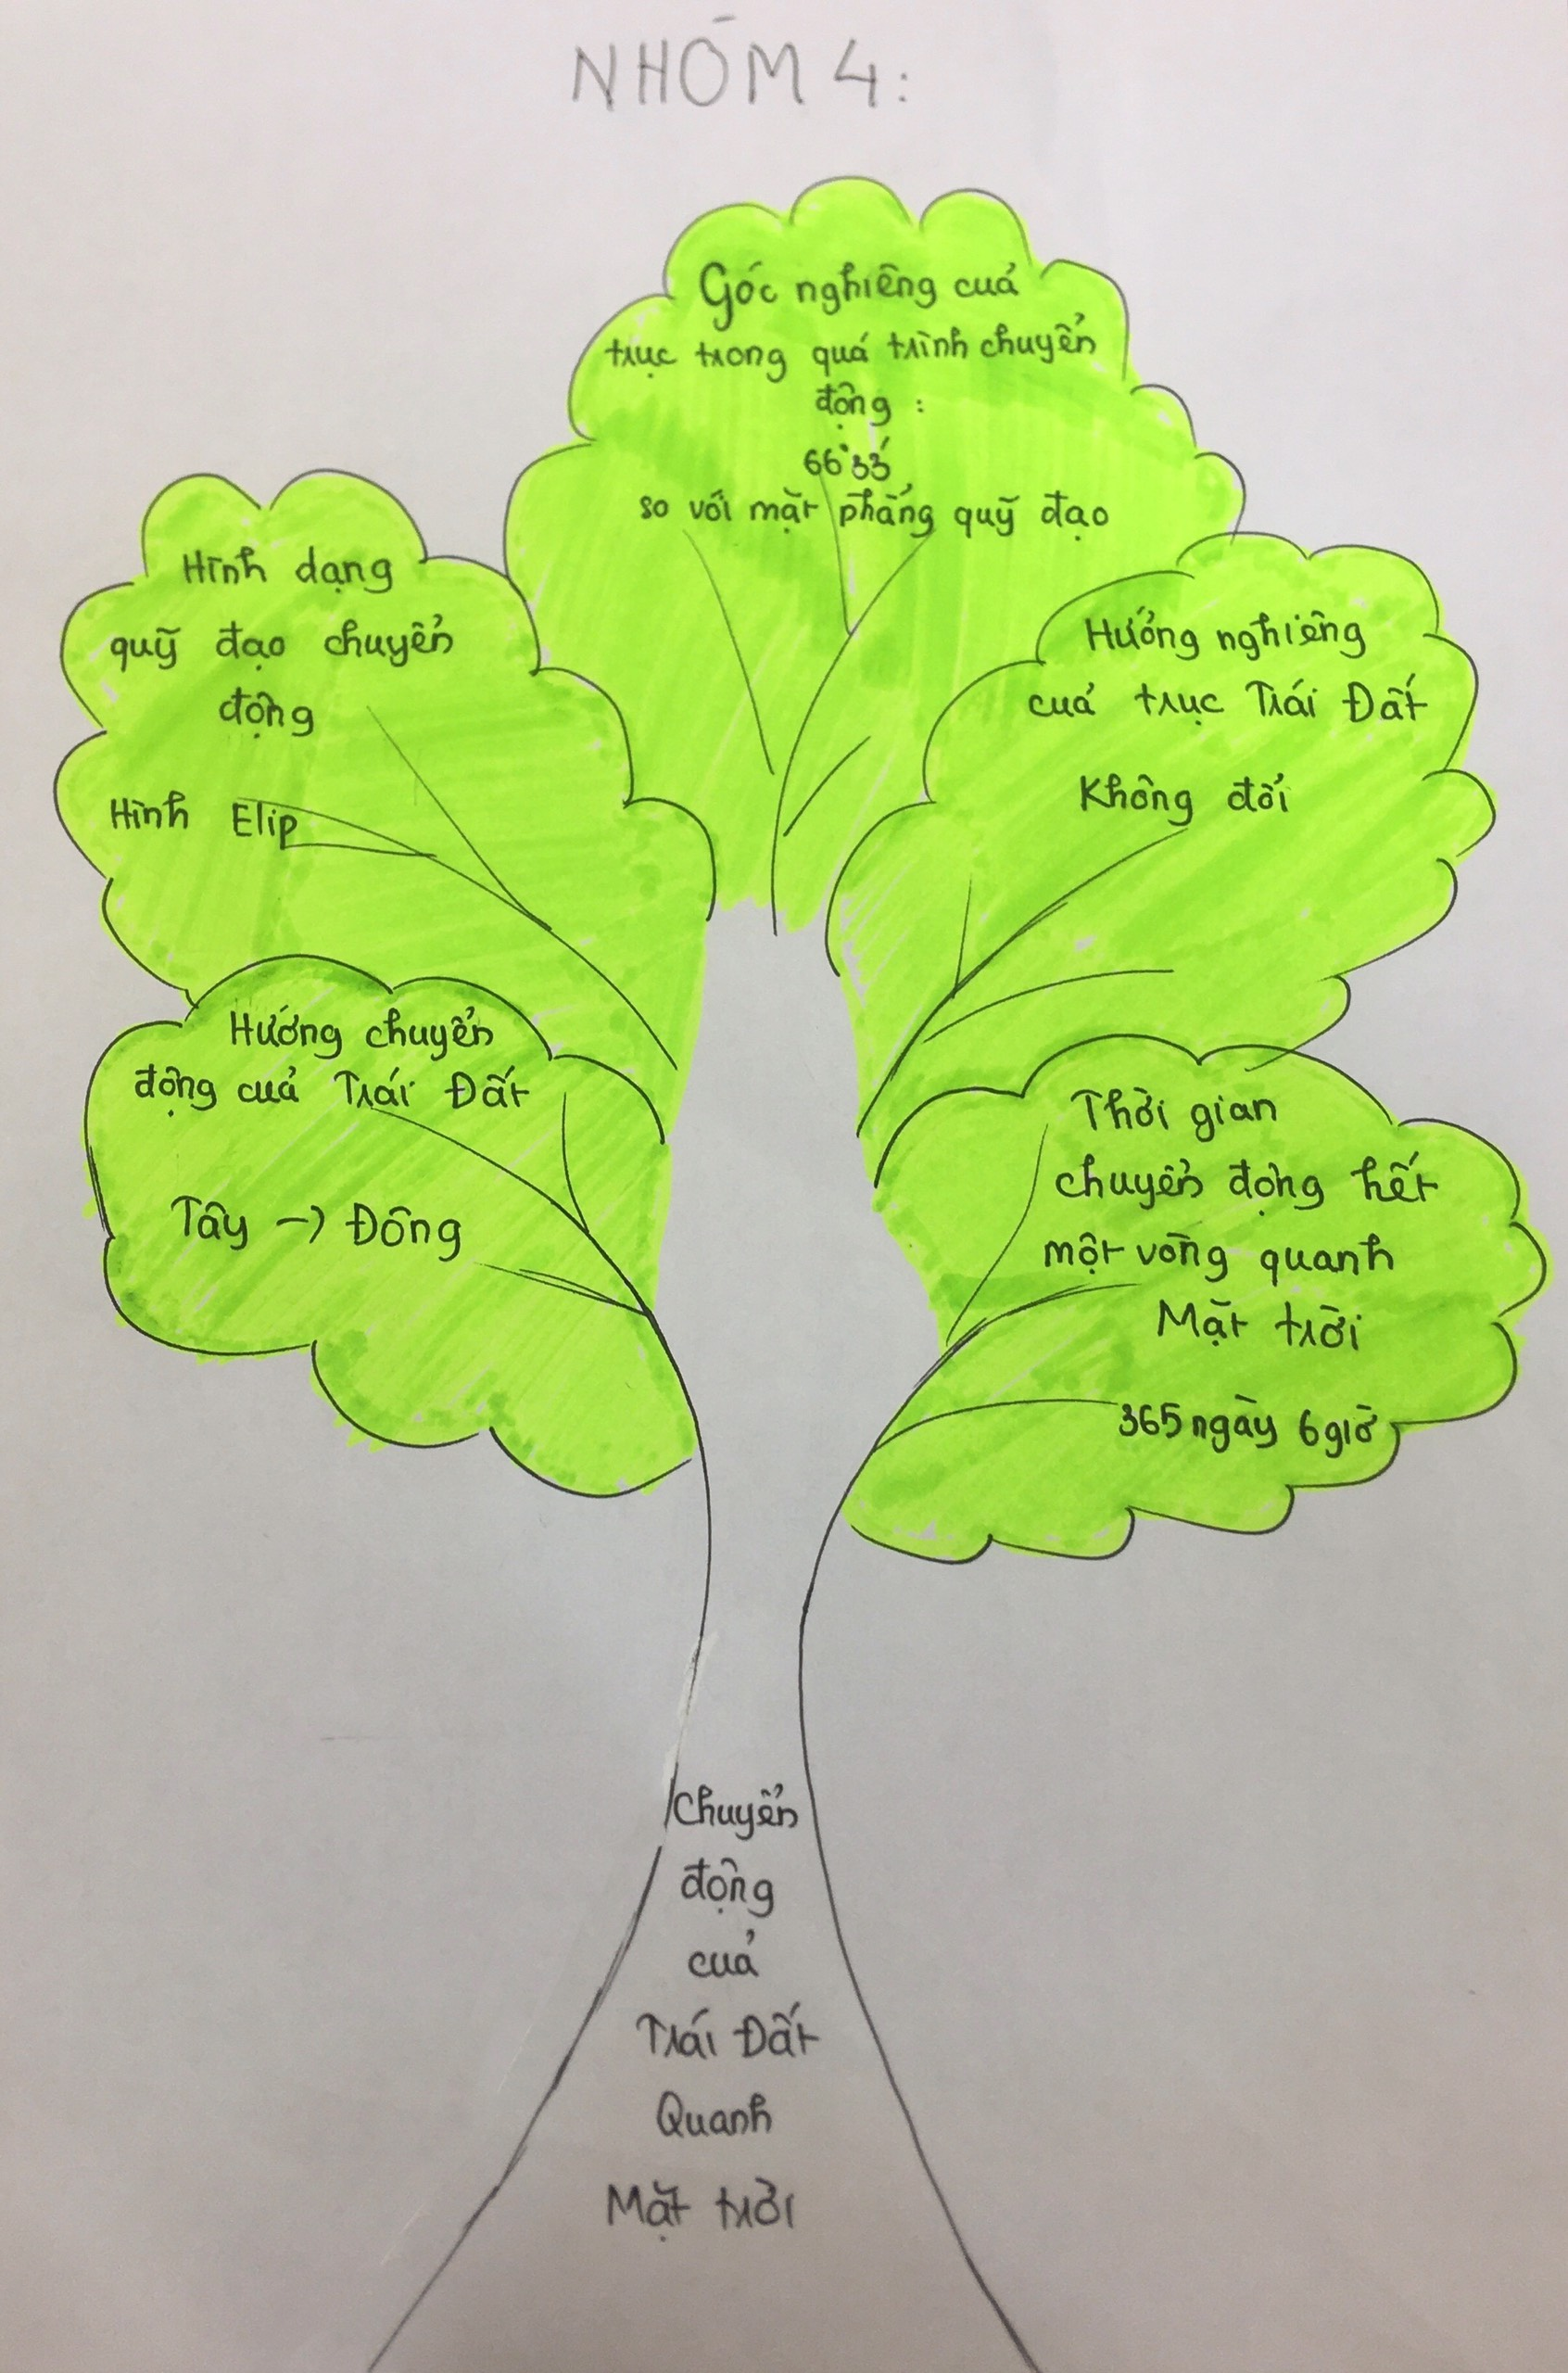 NHÓM 4:
Góc nghiêng của
trục trong quá trình chuyển
động :
66°33'
so với mặt phẳng quỹ đạo
Hình dạng
quỹ đạo chuyển
động
Hình Elip
Hướng nghiêng
của trục Trái Đất
Không đổi
Hướng chuyển
động của Trái Đất
Tây -> Đông
Thời gian
chuyển động hết
một vòng quanh
Mặt trời
365 ngày 6 giờ
Chuyển
động
của
Trái Đất
Quanh
Mặt trời